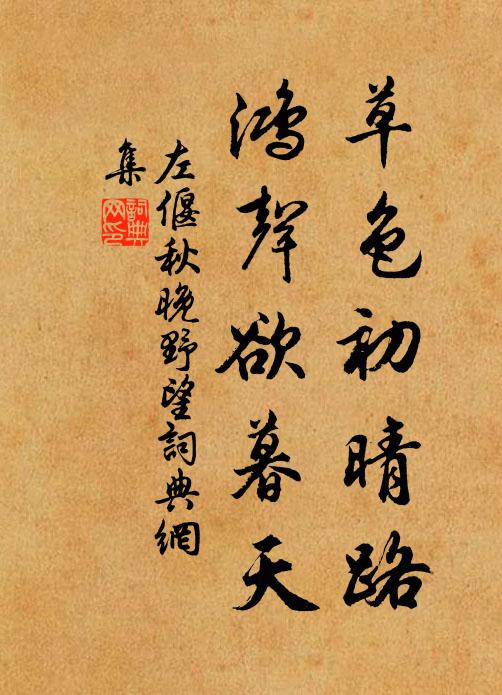 草色初晴路
鴻聲欲暮天
左偃秋晚野望詞典網
集
詞典
网印